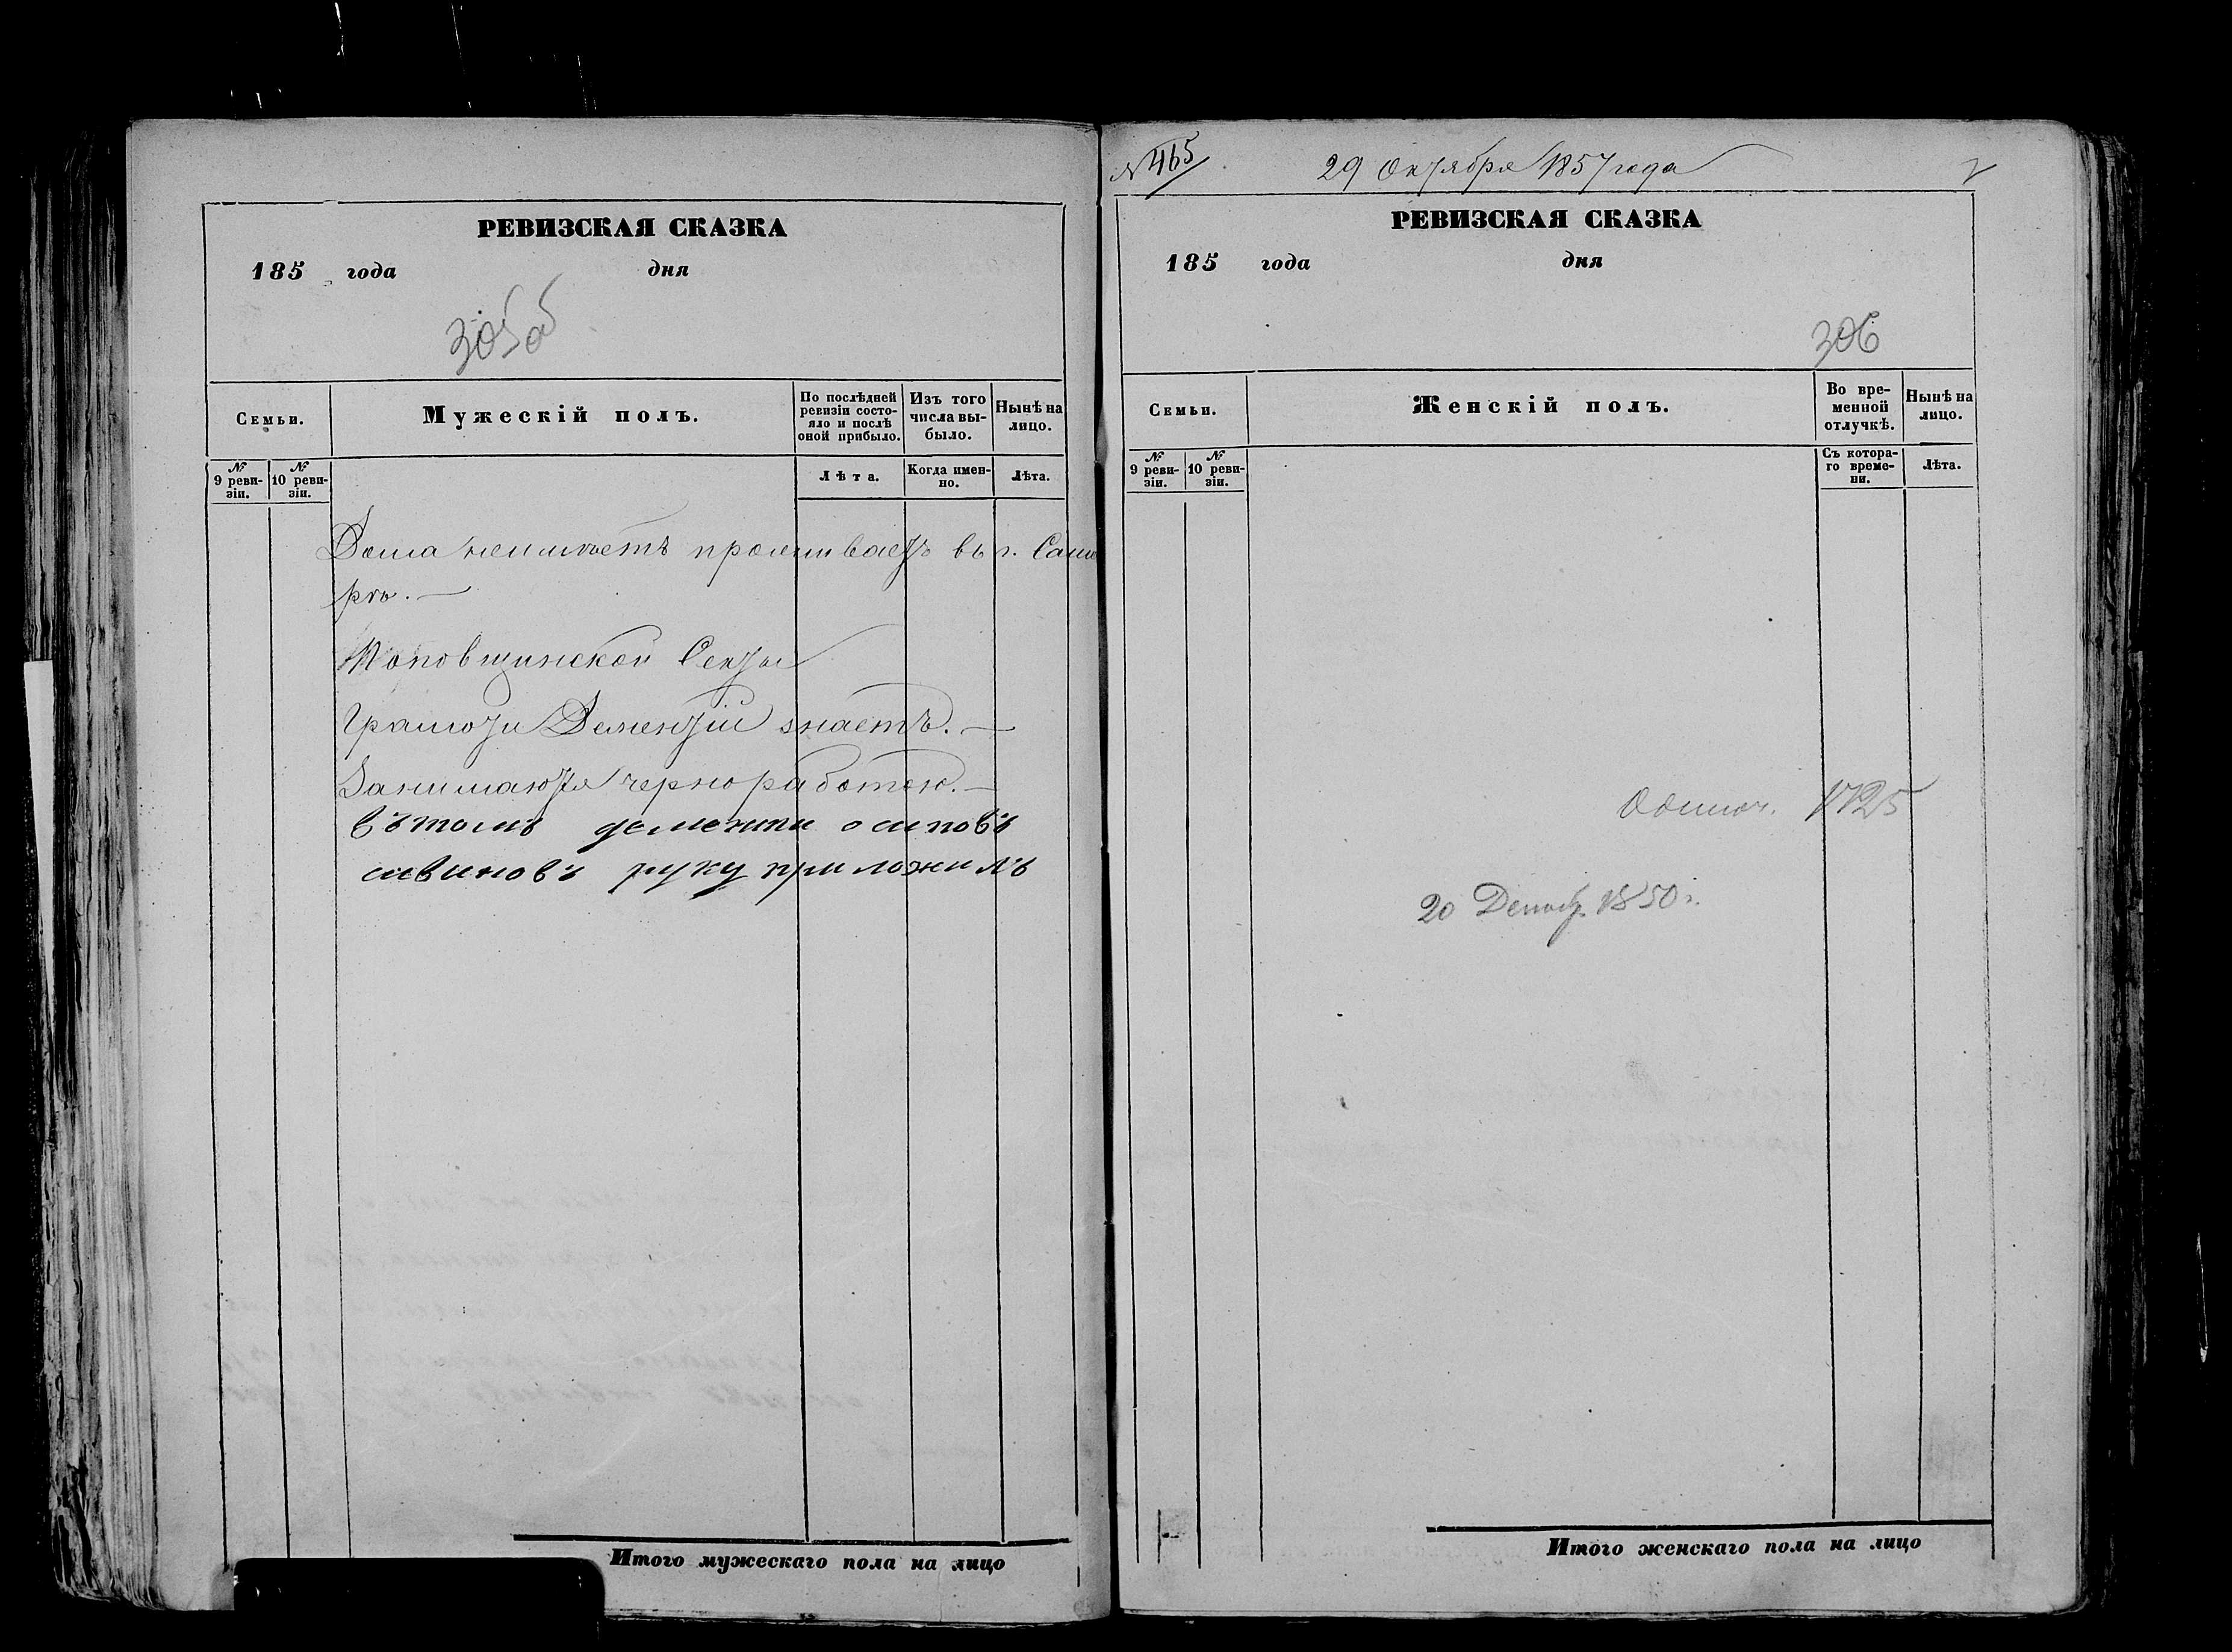 РЕВИЗСКАЯ СКАЗКА
185 года дня
305об
Семьи.
Мужескій полъ.
По послѣдней ревизіи состояло и послѣ оной прибыло.
Изъ того числа выбыло.
Нынѣ на лицо.
№ 9 ревизіи.
№ 10 ревизіи.
Лѣта.
Когда именно.
Лѣта.
Дома неимѣетъ проживаетъ въ г. Сама
рѣ. —
Поповщинской Секты
Грамоти Дементій знаетъ. —
Занимаются черноработою. —
вътомъ дементи осиповъ
сивиновъ руку приложилъ
Итого мужескаго пола на лицо
№ 465
29 Октября 1857 года
РЕВИЗСКАЯ СКАЗКА
185 года дня
306
Семьи.
Женскій полъ.
Во временной отлучкѣ.
Нынѣ на лицо.
№ 9 ревизіи.
№ 10 ревизіи.
Съ котораго времени.
Лѣта.
1725
20 Декабр. 1850 г.
Итого женскаго пола на лицо